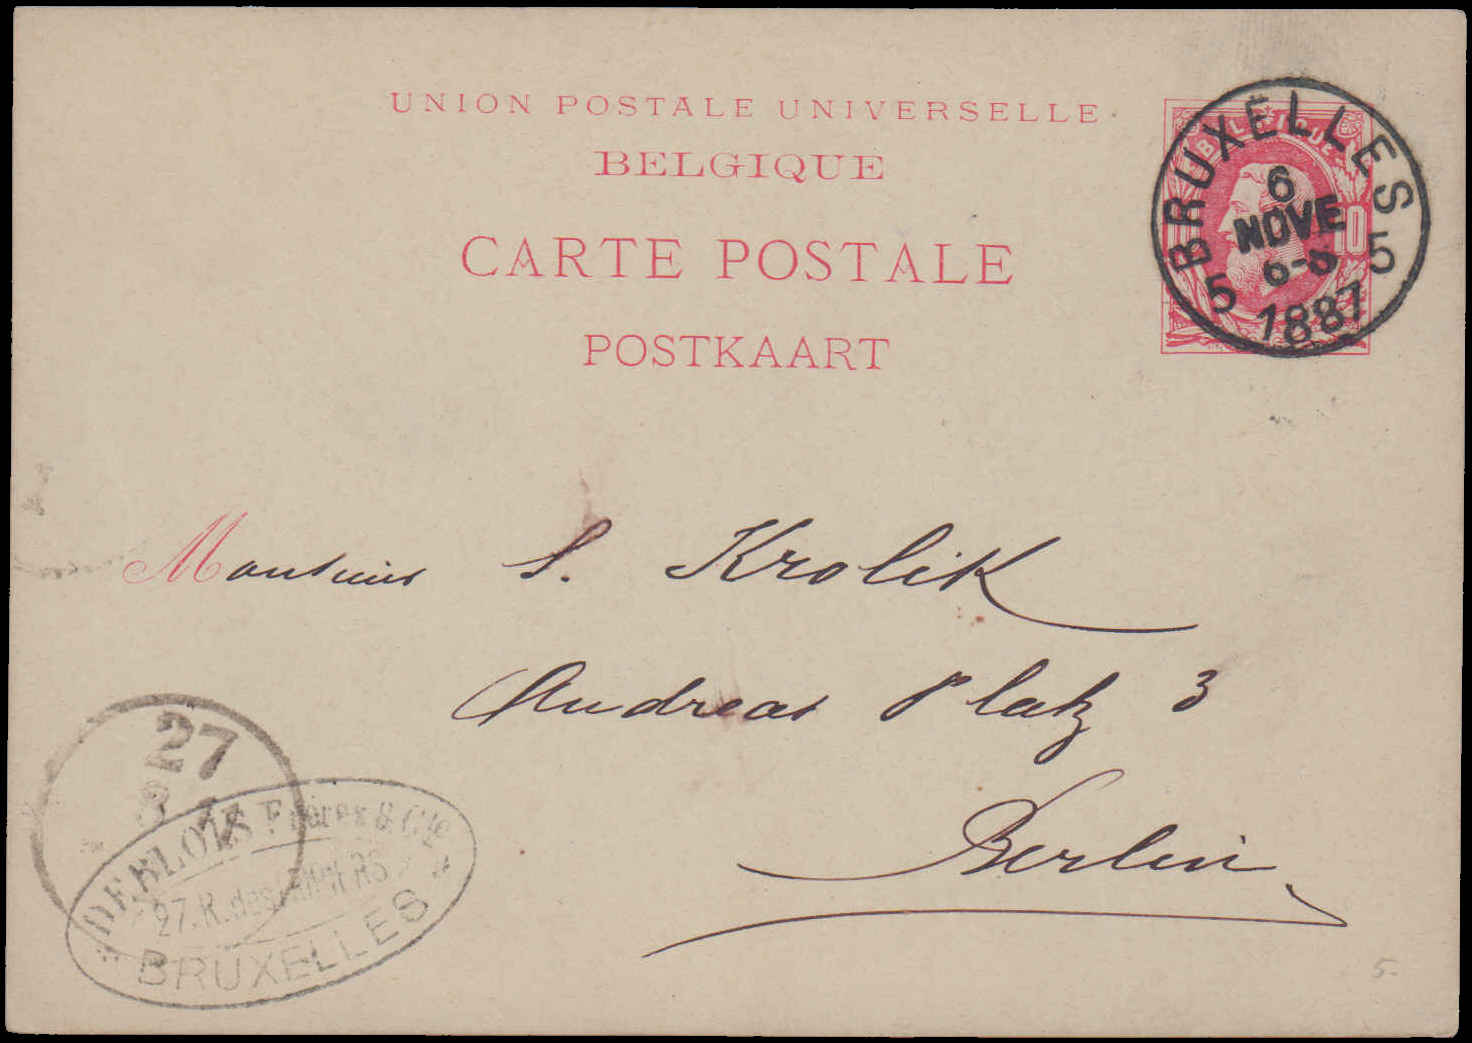 UNION POSTALE UNIVERSELLE
BELGIQUE
CARTE POSTALE
POSTKAART
BELGIQUE
10
BRUXELLES
6
NOVE
6-8
1887
5 5
Monsieur S. Krolik
Andreas Platz 3
Berlin
27
DEBLOIS Frères & Cie
27. R. des
BRUXELLES
5.